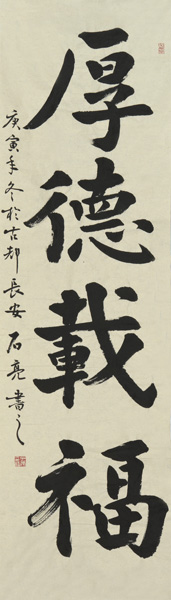 厚德載福
庚寅年冬於古都長安石亮書之